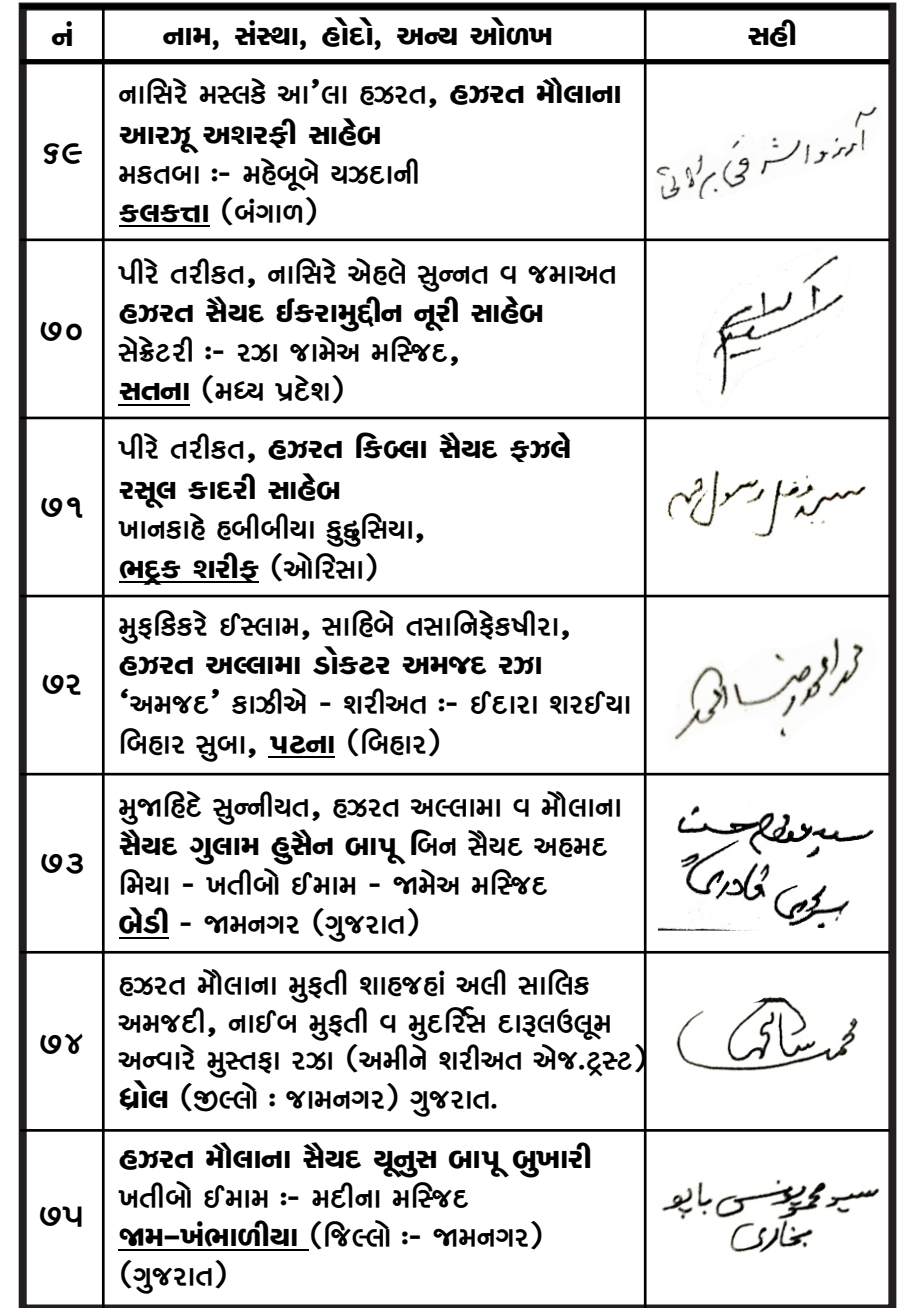 નં નામ, સંસ્થા, હોદો, અન્ય ઓળખ સહી
૬૯
નાસિરે મસ્લકે આ'લા હઝરત, હઝરત મૌલાના
આરઝૂ અશરફી સાહેબ
મકતબા :- મહેબૂબે યઝદાની
કલકત્તા (બંગાળ)
૭૦
પીરે તરીકત, નાસિરે એહલે સુન્નત વ જમાઅત
હઝરત સૈયદ ઈકરામુદ્દીન નૂરી સાહેબ
સેક્રેટરી :- રઝા જામેઅ મસ્જિદ,
સતના (મધ્ય પ્રદેશ)
૭૧
પીરે તરીકત, હઝરત કિબ્લા સૈયદ ફઝલે
રસૂલ કાદરી સાહેબ
ખાનકાહે હબીબીયા કુદ્દુસિયા,
ભદ્રક શરીફ (ઓરિસા)
૭૨
મુફકિકરે ઈસ્લામ, સાહિબે તસાનિફેકષીરા,
હઝરત અલ્લામા ડોકટર અમજદ રઝા
‘અમજદ’ કાઝીએ - શરીઅત :- ઈદારા શરઈયા
બિહાર સુબા, પટના (બિહાર)
૭૩
મુજાહિદે સુન્નીયત, હઝરત અલ્લામા વ મૌલાના
સૈયદ ગુલામ હુસૈન બાપૂ બિન સૈયદ અહમદ
મિયા - ખતીબો ઈમામ - જામેઅ મસ્જિદ
બેડી - જામનગર (ગુજરાત)
૭૪
હઝરત મૌલાના મુફતી શાહજહાં અલી સાલિક
અમજદી, નાઈબ મુફતી વ મુદર્રિસ દારૂલઉલૂમ
અન્વારે મુસ્તફા રઝા (અમીને શરીઅત એજ.ટ્રસ્ટ)
ધ્રોલ (જીલ્લો : જામનગર) ગુજરાત.
૭૫
હઝરત મૌલાના સૈયદ યૂનુસ બાપૂ બુખારી
ખતીબો ઈમામ :- મદીના મસ્જિદ
જામ-ખંભાળીયા (જિલ્લો :- જામનગર)
(ગુજરાત)
سید محمد یونس باپو
بخاری